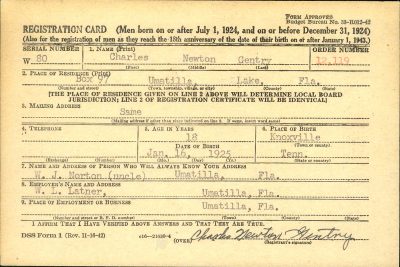 Form Approved
Budget Bureau No. 33-R012-42
REGISTRATION CARD (Men born on or after July 1, 1924, and on or before December 31, 1924)
(Also for the registration of men as they reach the 18th anniversary of the date of their birth on or after January 1, 1943.)
SERIAL NUMBER 1. NAME (Print) ORDER NUMBER
W 80 Charles Newton Gentry 12,119
(First) (Middle) (Last)
2. PLACE OF RESIDENCE (Print)
Box 97 Umatilla, Lake, Fla.
(Number and street) (Town, township, village, or city) (County) (State)
[THE PLACE OF RESIDENCE GIVEN ON LINE 2 ABOVE WILL DETERMINE LOCAL BOARD
JURISDICTION; LINE 2 OF REGISTRATION CERTIFICATE WILL BE IDENTICAL]
3. MAILING ADDRESS
Same
(Mailing address if other than place indicated on line 2. If same, insert word same)
4. TELEPHONE 5. AGE IN YEARS 6. PLACE OF BIRTH
18 Knoxville
DATE OF BIRTH (Town or county)
Jan. 16, 1925 Tenn.
(Exchange) (Number) (Mo.) (Day) (Yr.) (State or country)
7. NAME AND ADDRESS OF PERSON WHO WILL ALWAYS KNOW YOUR ADDRESS
W. J. Norton (uncle) Umatilla, Fla.
8. EMPLOYER'S NAME AND ADDRESS
W. L. Latner, Umatilla, Fla.
9. PLACE OF EMPLOYMENT OR BUSINESS
Umatilla, Fla.
(Number and street or R. F. D. number) (Town) (County) (State)
I AFFIRM THAT I HAVE VERIFIED ABOVE ANSWERS AND THAT THEY ARE TRUE.
DSS Form 1 (Rev. 11-16-42) (OVER) Charles Newton Gentry
(Registrant's signature)